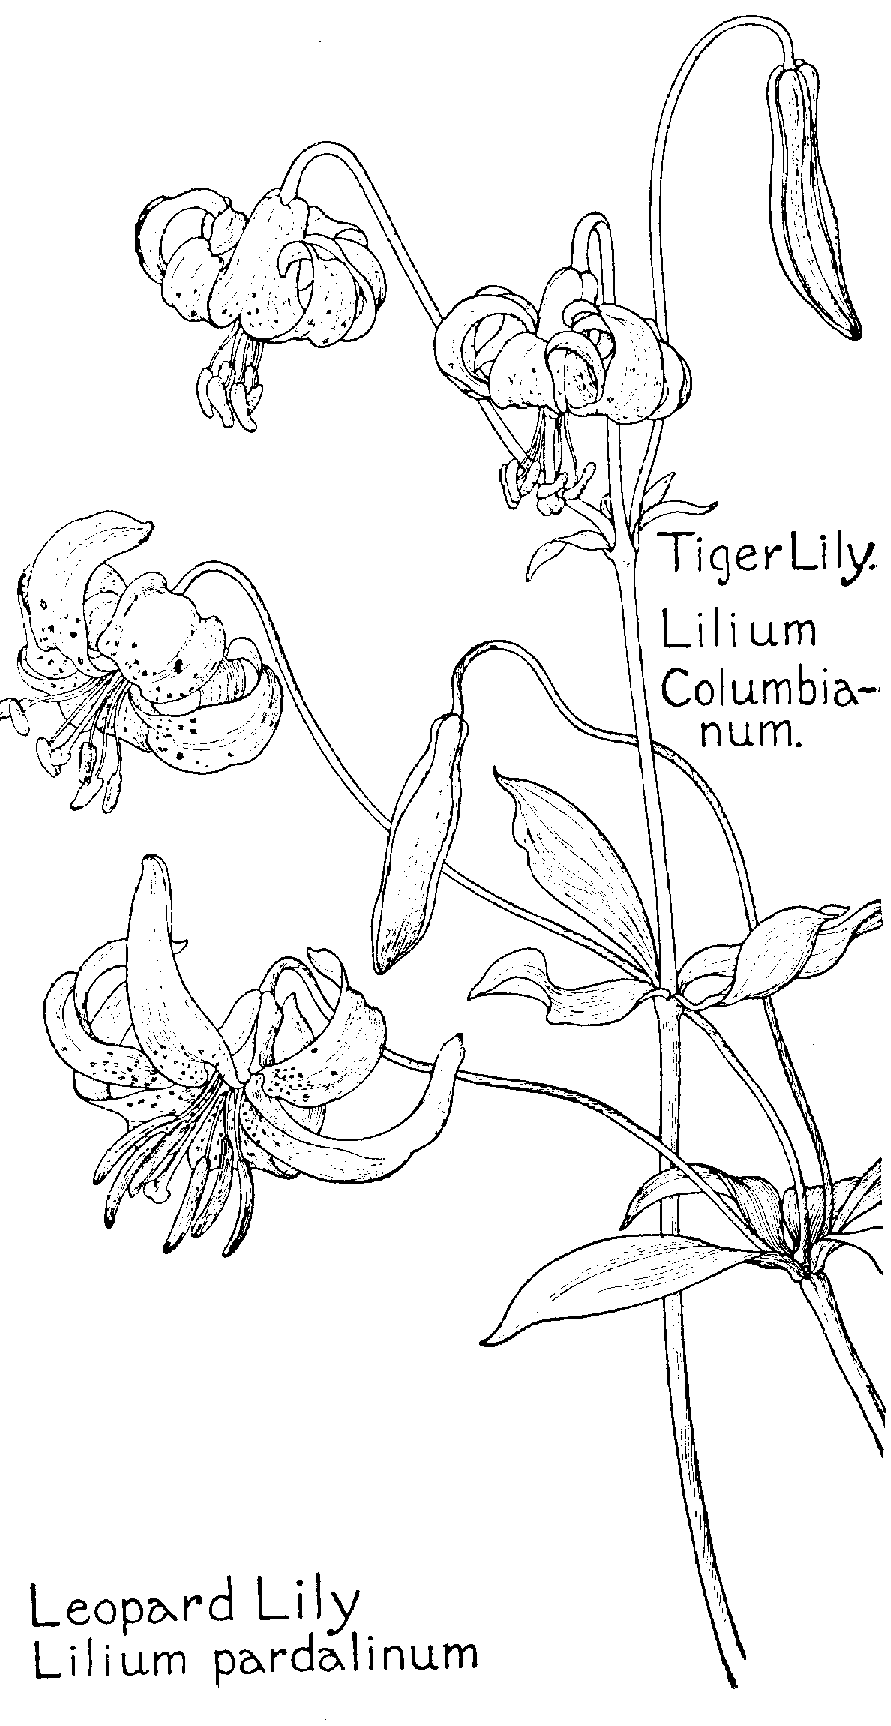 Tiger Lily.
Lilium
Columbia-
num.
Leopard Lily
Lilium pardalinum